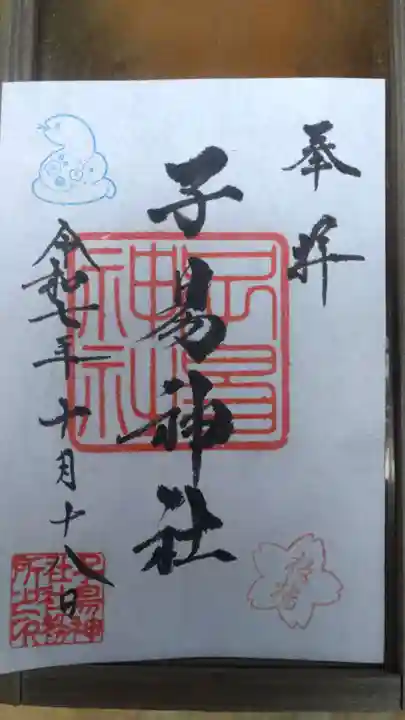 奉拝
子易神社
子易神社
令和七年十月十八日
子易神
社社務
所之印